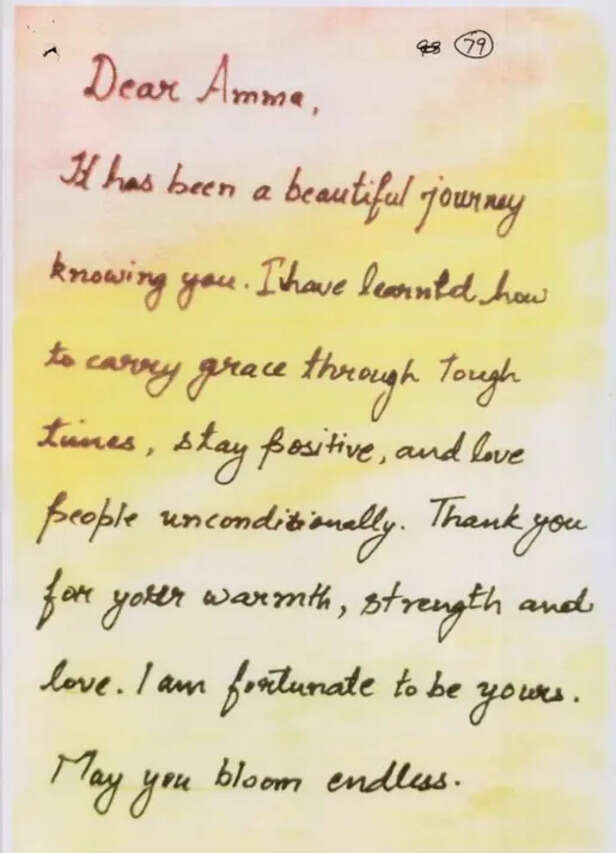 79
Dear Amma,
It has been a beautiful journey
knowing you. I have learntd how
to carry grace through Tough
times, stay positive, and love
people unconditionally. Thank you
for your warmth, strength and
love. I am fortunate to be yours.
May you bloom endless.